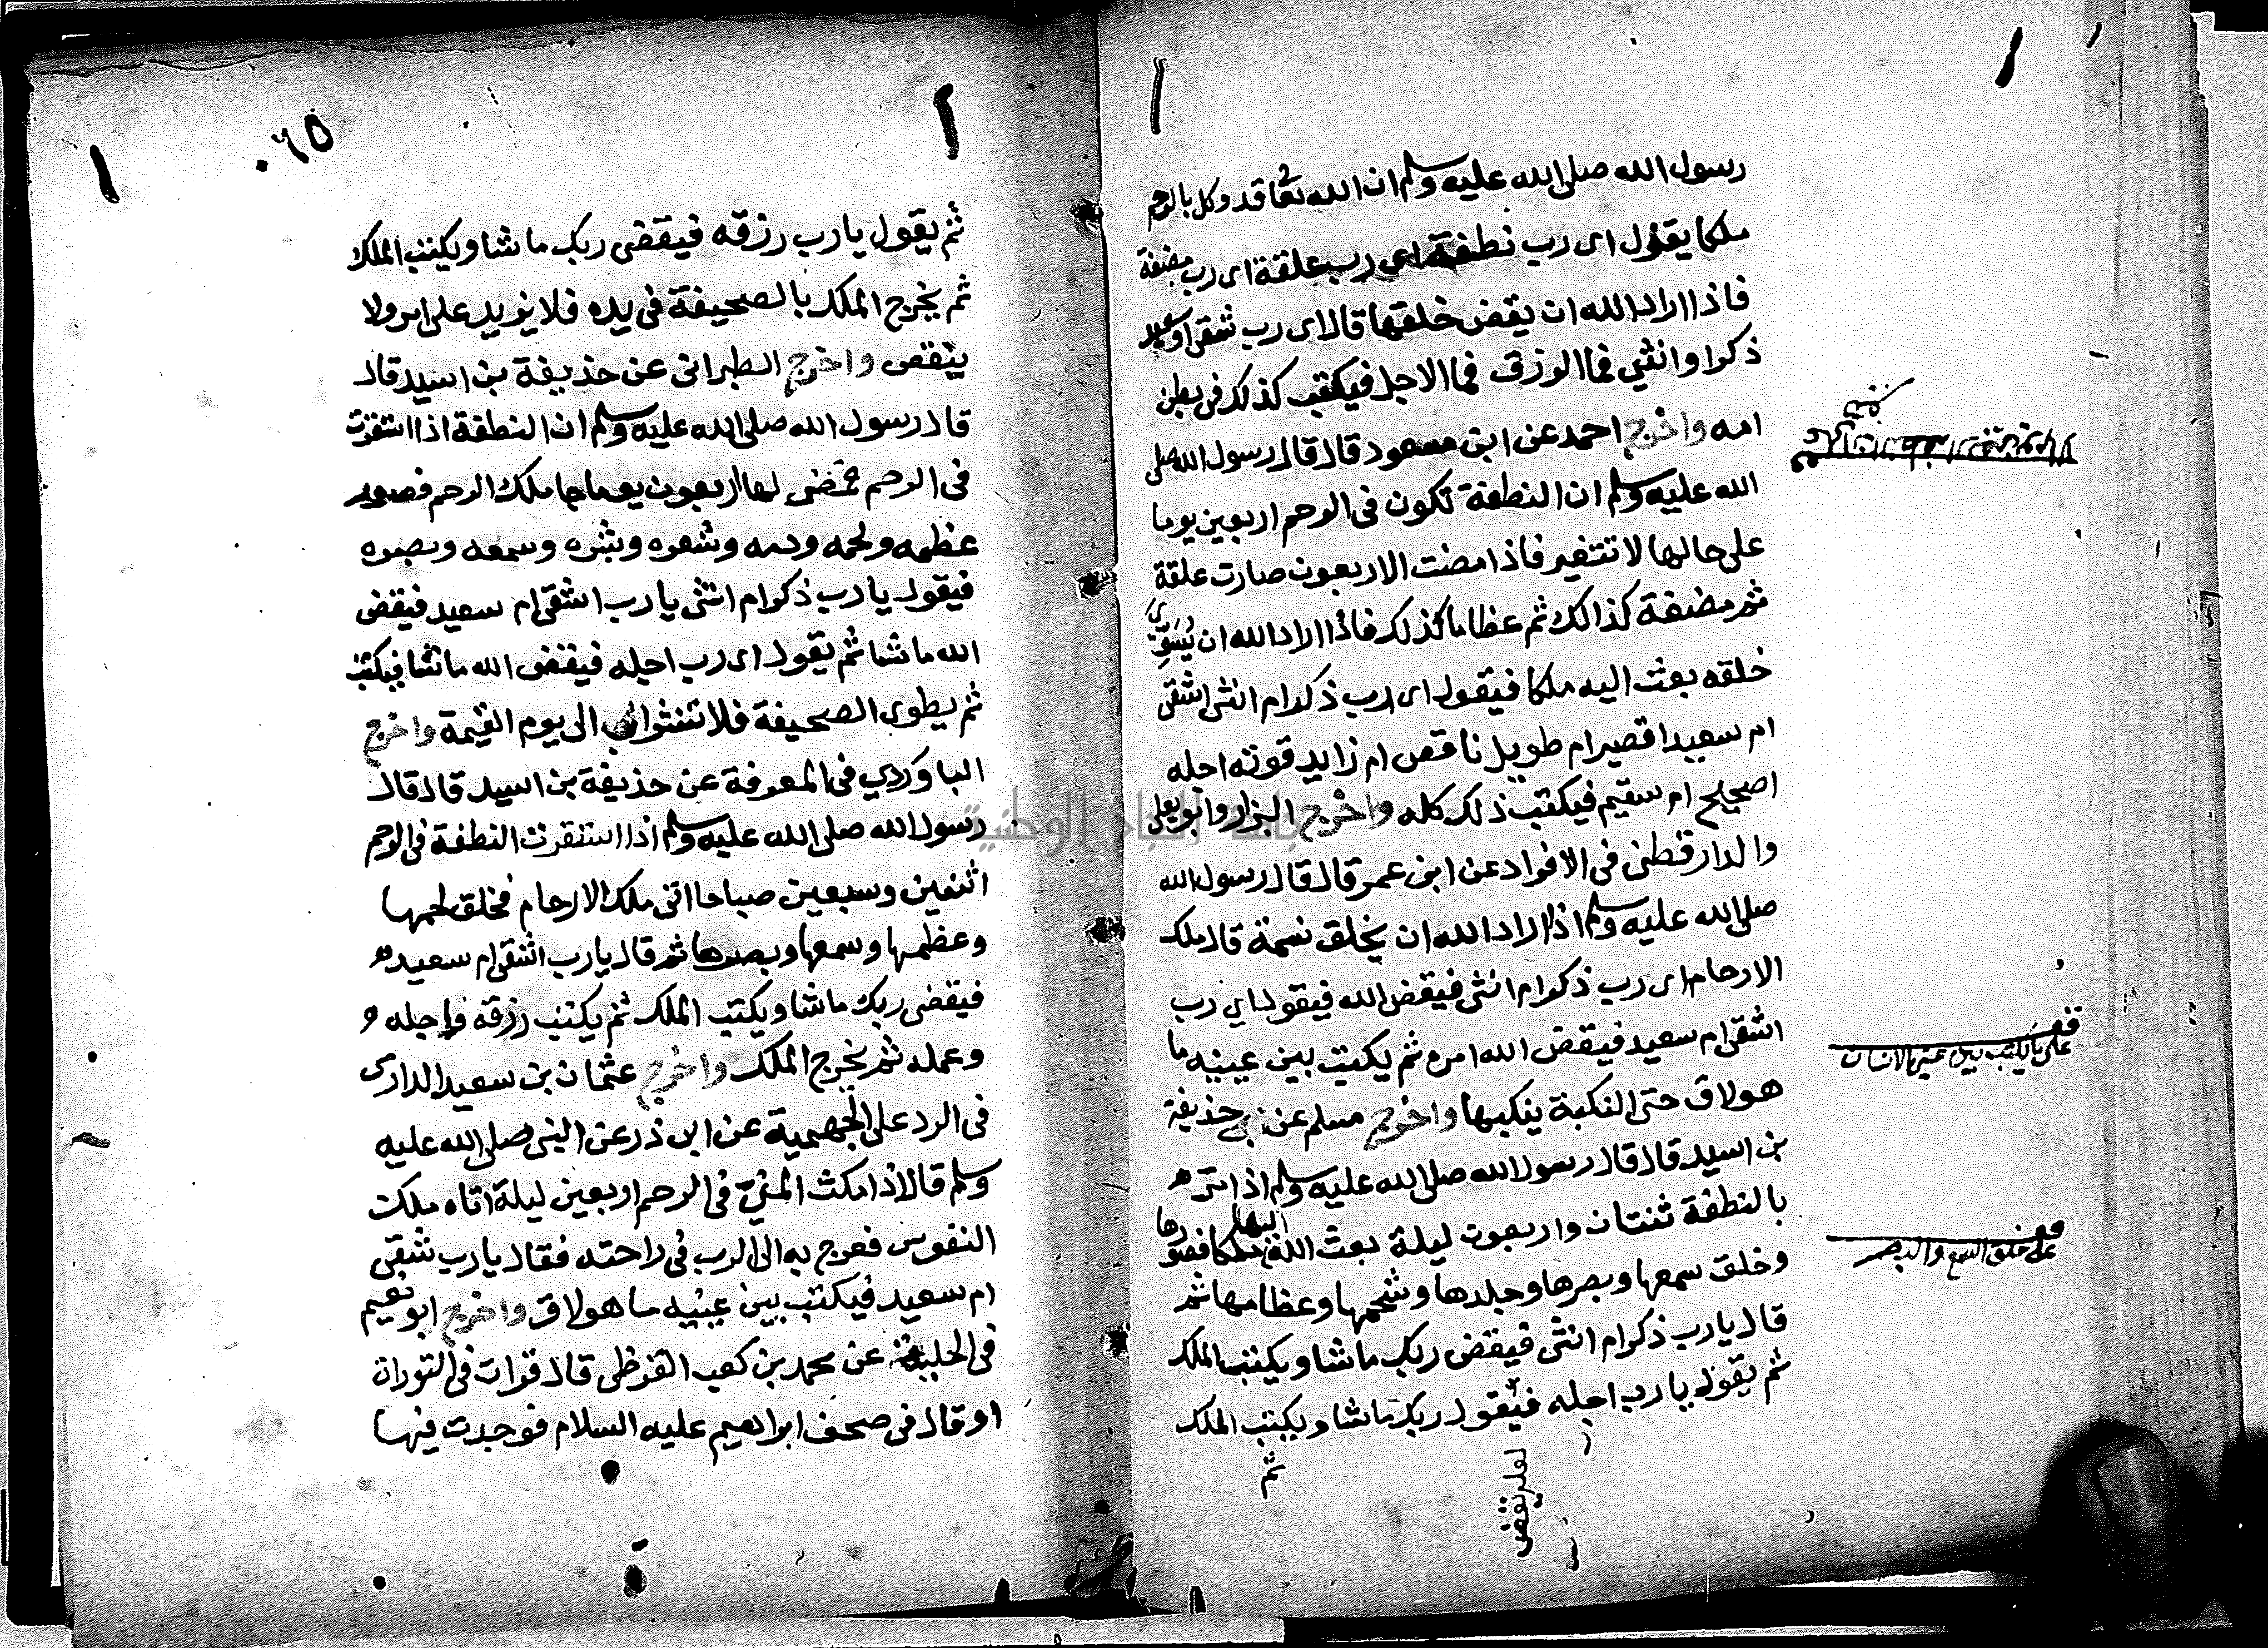 رسول الله صلى الله عليه وسلم ان الله تعا قد وكل بالرحم
ملكا يقول اى رب نطفة اى رب علقة اى رب مضغة
فاذا اراد الله ان يقض خلقها قال اى رب شقى او سعيد
ذكرا وانثي فما الرزق فما الاجل فيكتب كذلك فى بطن
امه واخرج احمد عن ابن مسعود قال قال رسول الله صلى
الله عليه وسلم ان النطفة تكون فى الرحم اربعين يوما
على حالها لا تتغير فاذا مضت الاربعون صارت علقة
ثم مضغة كذالك ثم عظاما كذلك فاذا اراد الله ان يُسَوِّى
خلقه بعث اليه ملكا فيقول اى رب ذكرام انثى اشقى
ام سعيد اقصير ام طويل ناقص ام زايد قوته اجله
اصحيح ام سقيم فيكتب ذلك كله واخرج البزار وابو يعلى
والدارقطنى فى الافراد عن ابن عمر قال قال رسول الله
صلى الله عليه وسلم اذا اراد الله ان يخلق نسمة قال ملك
الارحام اى رب ذكرام انثى فيقض الله فيقول اي رب
اشقى ام سعيد فيقض الله امره ثم يكتب بين عينيه ما
هولاق حتى النكبة ينكبها واخرج مسلم عن حذيفة
بن اسيد قال قال رسول الله صلى الله عليه وسلم اذا مر
بالنطفة ثنتان واربعون ليلة بعث الله اليها ملكا فصورها
وخلق سمعها وبصرها وجلدها وشحمها وعظامها ثم
قال يا رب ذكرام انثى فيقض ربك ما شا ويكتب الملك
ثم يقول يا رب اجله فيقول ربك ما شا ويكتب الملك
ثم
لعله فيقض
قف
على ما يكتب بين عينى الانسان
قف
على خلق السمع والبصر
٠٦٥
ثم يقول يا رب رزقه فيقضى ربك ما شا ويكتب الملك
ثم يخرج الملك بالصحيفة فى يده فلا يزيد على امر ولا
ينقص واخرج الطبرانى عن حذيفة بن اسيد قال
قال رسول الله صلى الله عليه وسلم ان النطفة اذا استقرت
فى الرحم فمضى لها اربعون يوما جا ملك الرحم فصور
عظمه ولحمه ودمه وشعره وبشره وسمعه وبصره
فيقول يا رب ذكرام انثى يا رب اشقى ام سعيد فيقض
الله ما شا ثم يقول اى رب اجله فيقضى الله ما شا فيكتب
ثم يطوى الصحيفة فلا تنشر الى يوم القيمة واخرج
الباوردي فى المعرفة عن حذيفة بن اسيد قال قال
رسول الله صلى الله عليه وسلم اذا استقرت النطفة فى الرحم
اثنين وسبعين صباحا اتى ملك الارحام فخلق لحمها
وعظمها وسمعها وبصرها ثم قال يا رب اشقى ام سعيد
فيقضى ربك ما شا ويكتب الملك ثم يكتب رزقه واجله
وعمله ثم يخرج الملك واخرج عثمان بن سعيد الدارى
فى الرد على الجهمية عن ابى ذر عن النبى صلى الله عليه
وسلم قال اذا مكث المنىّ فى الرحم اربعين ليلة اتاه ملك
النفوس فعرج به الى الرب فى راحته فقال يا رب شقى
ام سعيد فيكتب بين عينيه ما هولاق واخرج ابو نعيم
فى الحلية عن محمد بن كعب القرظى قال قرات فى التوراة
او قال فى صحف ابراهيم عليه السلام فوجدت فيها